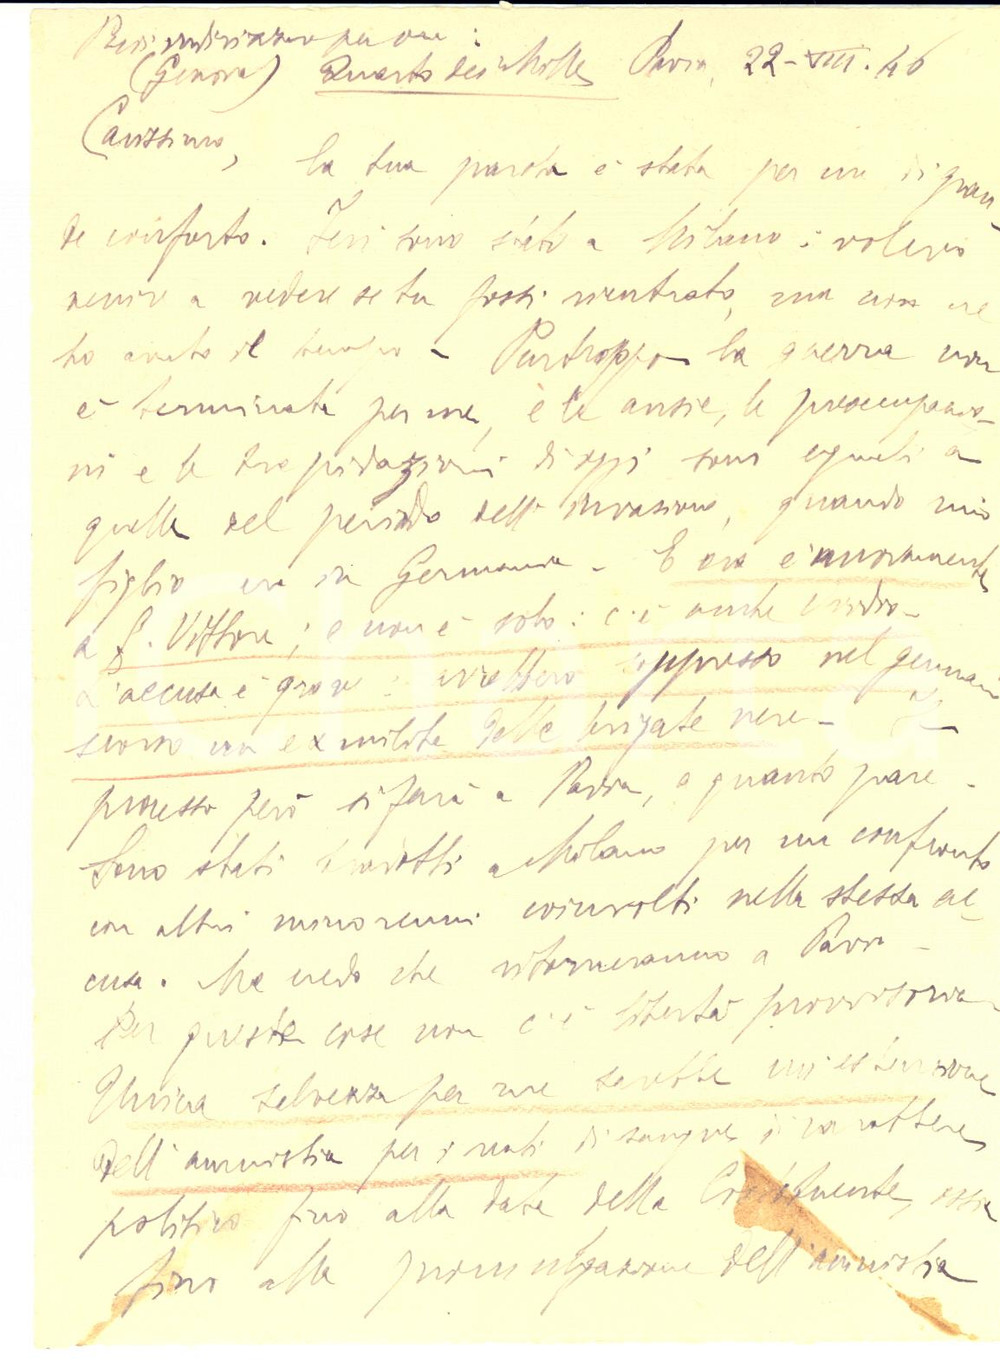 indirizzo per ora :
(Genova) Quarto dei Mille Pavia, 22-VIII.46
Carissimo,
la tua parola è stata per me di gran-
de conforto. Ieri sono stato a Milano : volevo
venire a vedere se tu fossi rientrato, ma non ne
ho avuto il tempo - Purtroppo la guerra non
è terminata per me, e le ansie, le preoccupazio-
ni e le trepidazioni di oggi sono eguali a
quelle del periodo dell'invasione, quando mio
figlio era in Germania - E ora è nuovamente
a S. Vittore ; e non è solo : c'è anche
L'accusa è grave : avrebbero soppresso nel gennaio
scorso un ex milite delle brigate nere - Il
processo però si farà a Pavia, a quanto pare -
Sono stati tradotti a Milano per un confronto
con altri minorenni coinvolti nella stessa ac-
cusa. Ma credo che ritorneranno a Pavia -
Per queste cose non c'è libertà provvisoria -
Unica salvezza per me sarebbe un'estensione
dell'amnistia per i reati di sangue di carattere
politico fino alla data della Costituente, ossia
fino alla promulgazione dell'amnistia